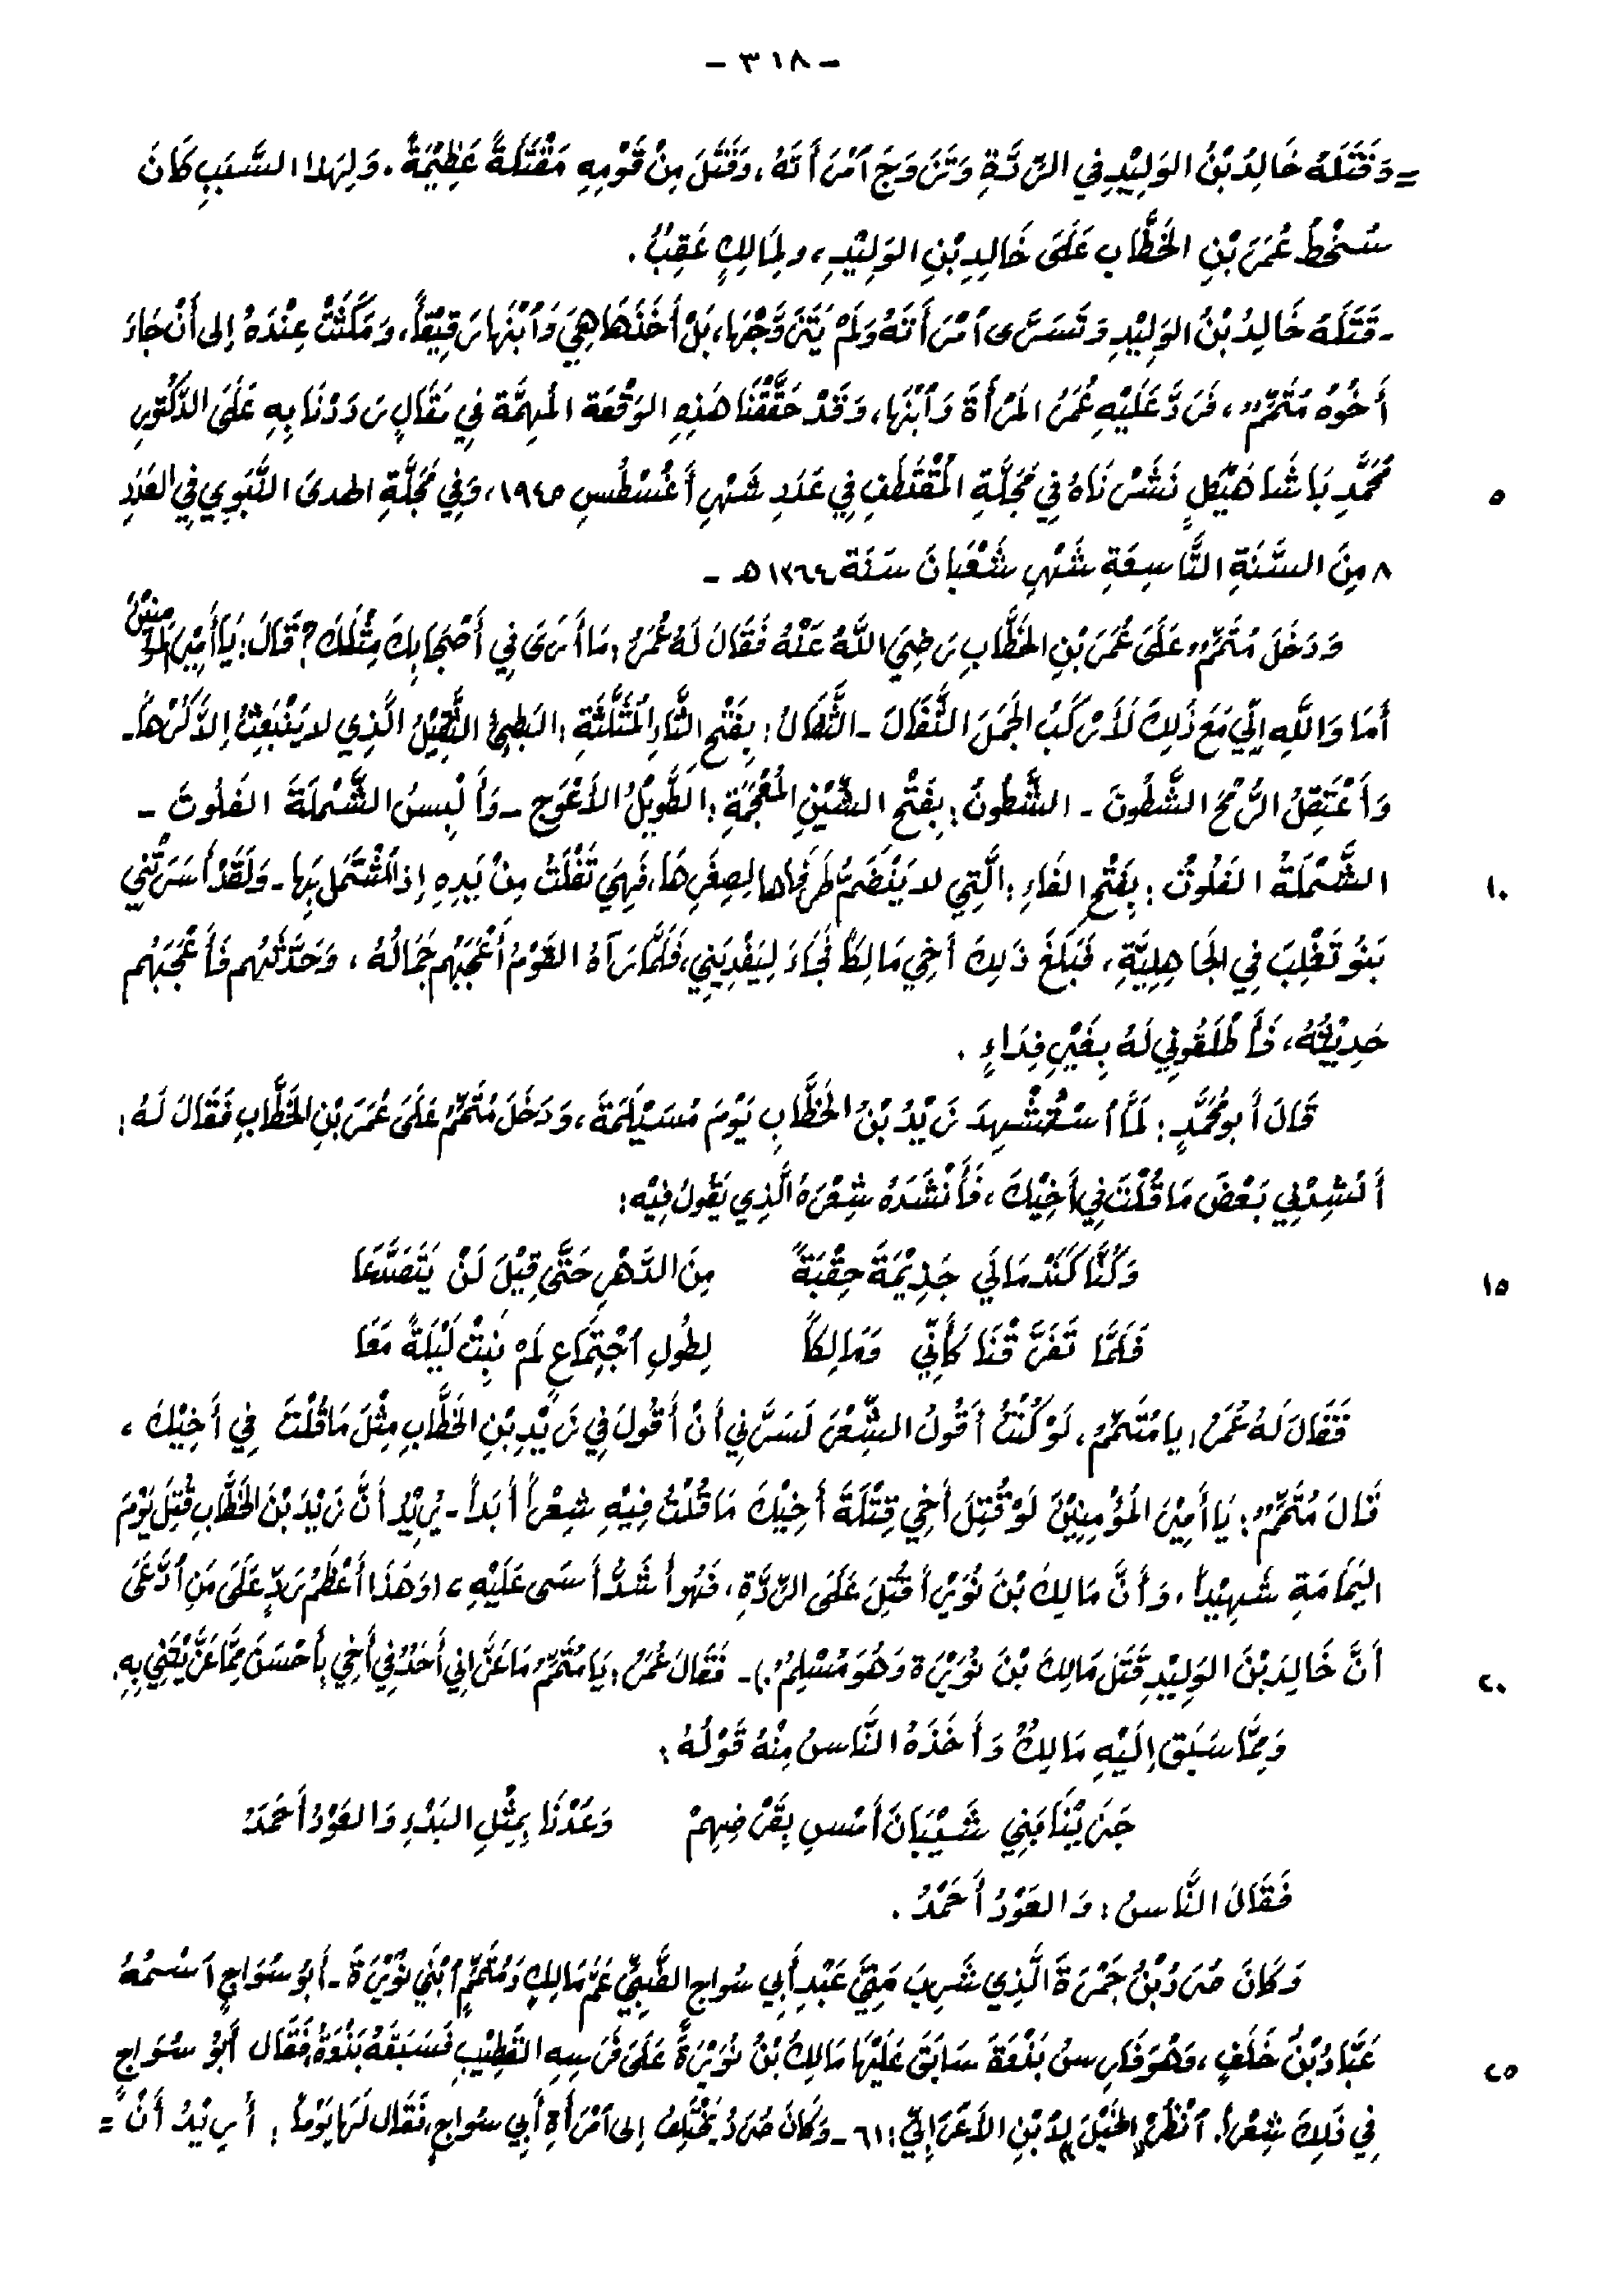 - ٣١٨ -
= وَقَتَلَهُ خَالِدُ بْنُ الوَلِيْدِ فِي الرِّدَّةِ وَتَزَوَجَ ٱمْرَأَتَهُ، وَقَتَلَ مِنْ قَوْمِهِ مَقْتَلَةً عَظِيْمَةً. وَلِهَذا السَّبَبِ كَانَ
سُخْطُ عُمَرَ بْنِ الخَطَّابِ عَلَى خَالِدِ بْنِ الوَلِيْدِ، ولِمَالِكٍ عَقِبٌ.
- قَتَلَهُ خَالِدُ بْنُ الوَلِيْدِ وَتَسَرَّى ٱمْرَأَتَهُ وَلَمْ يَتَزَوَّجْهَا، بَلْ أَخَذَهَا هِيَ وَٱبْنَهَا رَقِيْقاً، وَمَكَثَتْ عِنْدَهُ إلى أَنْ جَاءَ
أَخُوهُ مُتَمِّمٌ، فَرَدَّ عَلَيْهِ عُمَرُ المَرْأَةَ وَٱبْنَهَا، وَقَدْ حَقَّقْنَا هَذِهِ الوَقْعَة المُهِمَّة فِي مَقَالٍ رَدَدْنَا بِهِ عَلَى الدُّكْتُورِ
مُحَمَّدِ بَاشَا هَيْكَلٍ نَشَرْنَاهُ فِي مَجَلَّةِ المُقْتَطَفِ فِي عَدَدِ شَهْرِ أَغُسْطُسِ ١٩٤٥، وَفِي مَجَلَّةِ الهدى النَّبَوِي فِي العَدَدِ
٥
٨ مِنَ السَّنَةِ التَّاسِعَةِ شَهْرِ شَعْبَانَ سَنَة ١٣٦٤ هـ -
وَدَخَلَ مُتَمِّمٌ عَلَى عُمَرَ بْنِ الخَطَّابِ رَضِيَ اللَّهُ عَنْهُ فَقَالَ لَهُ عُمَرُ: مَا أَرَى فِي أَصْحَابِكَ مِثْلَكَ؟ قَالَ: يَا أَمِيْرَ المُؤْمِنِيْنَ
أَمَا وَاللَّهِ إِنِّي مَعَ ذَلِكَ لَأَرْكَبُ الجَمَلَ الثَّفَالَ - الثَّفَالُ: بِفَتْحِ الثَّاءِ المُثَلَّثَةِ: البَطِيْءُ الثَّقِيْلُ الَّذِي لا يَنْبَعِثُ إلَّا كَرْهاً -
وَأَعْتَقِلُ الرُّمْحَ الشَّطُونَ - الشَّطُونُ: بِفَتْحِ الشِّيْنِ المُعْجَمَةِ: الطَّوِيْلُ الأَعْوَج - وَأَلْبِسُ الشَّمْلَةَ الفَلُوتَ -
الشَّمْلَةُ الفَلُوتُ: بِفَتْحِ الفَاءِ: الَّتِي لا يَنْضَمُّ طَرَفَاها لِصِغَرِهَا، فَهِيَ تَفْلَتُ مِنْ يَدِهِ إذَا ٱشْتَمَلَ بِهَا - وَلَقَدْ أَسَرَتْني
١٠
بَنُو تَغْلِبَ فِي الجَاهِلِيَّةِ، فَبَلَغَ ذَلِكَ أخِي مَالِكاً فَجَاءَ لِيَفْدِيَنِي، فَلَمَّا رَآهُ القَوْمُ أَعْجَبَهُم جَمَالُهُ، وَحَدَّثَهُم فَأَعْجَبَهُم
حَدِيْثُهُ، فَأَطْلَقُونِي لَهُ بِغَيْرِ فِدَاءٍ.
قَالَ أَبو مُحَمَّدٍ: لَمَّا ٱسْتُشْهِدَ زَيْدُ بْنُ الخَطَّابِ يَوْمَ مُسَيْلَمَةَ، وَدَخَلَ مُتَمِّمٌ عَلَى عُمَرَ بْنِ الخَطَّابِ فَقَالَ لَهُ:
أَنْشِدْنِي بَعْضَ مَا قُلْتَ فِي أَخِيْكَ، فَأَنْشَدَهُ شِعْرَهُ الَّذِي يَقُولُ فِيْه:
وَكُنَّا كَنَدْمَانَي جَذِيْمَةَ حِقْبَةً مِنَ الدَّهْرِ حَتَّى قِيْلَ لَنْ يَتَصَدَّعَا
١٥
فَلَمَّا تَفَرَّقْنَا كَأَنِّي وَمَالِكاً لِطُولِ ٱجْتِمَاعٍ لَمْ نَبِتْ لَيْلَةً مَعَا
فَقَالَ لَهُ عُمَرُ: يا مُتَمِّمُ، لَوْ كُنْتُ أَقُولُ الشِّعْرَ لَسَرَّنِي أَنْ أَقُولَ فِي زَيْدِ بْنِ الخَطَّابِ مِثْلَ مَا قُلْتَ فِي أَخِيْكَ،
قَالَ مُتَمِّمٌ: يَا أَمِيْرَ المُؤْمِنِيْنَ لَوْ قُتِلَ أَخِي قِتْلَةَ أَخِيْكَ مَا قُلْتُ فِيْهِ شِعْراً أبَداً - يُرِيْدُ أنَّ زَيْدَ بْنَ الخَطَّابِ قُتِلَ يَوْمَ
اليَمَامَةِ شَهِيْداً، وَأَنَّ مَالِكَ بْنَ نُوَيْرَةَ قُتِلَ عَلَى الرِّدَّةِ، فَهُوَ أَشَدُّ أَسَى عَلَيْهِ، (وَهَذَا أَعْظَمُ رَدٍّ عَلَى مَنِ ٱدَّعَى
أَنَّ خَالِدَ بْنَ الوَلِيْدِ قَتَلَ مَالِكَ بْنَ نُوَيْرَة وَهُوَ مُسْلِمٌ.) - فَقَالَ عُمَرُ: يَا مُتَمِّمُ مَا عَزَّانِي أَحَدٌ فِي أَخِي بِأَحْسَنَ مِمَّا عَزَّيْتَنِي بِهِ.
٢٠
وَمِمَّا سَبَقَ إِلَيْهِ مَالِكٌ وَأَخَذَهُ النَّاسُ مِنْهُ قَوْلُهُ:
جَزَيْنَا بَنِي شَيْبَانَ أَمْسِ بِقَرْضِهِمْ وَعُدْنَا بِمِثْلِ البَدْءِ وَالعَوْدُ أَحْمَدُ
فَقَالَ النَّاسُ: وَالعَوْدُ أَحْمَدُ.
وَكَانَ صُرَدُ بْنُ جَمْرَةَ الَّذِي شَرِبَ مَنِيَّ عَبْدِ أَبِي سُواجٍ الضَّبِّيِّ عَمَّ مَالِكٍ وَمُتَمِّمٍ ٱبْنَي نُوَيْرَةَ - أَبُو سُوَاجٍ ٱسْمُهُ
عَبَّادُ بْنُ خَلَفٍ، وَهُوَ فَارِسُ بَذْعَةَ سَابَقَ عَلَيْهَا مَالِكُ بْنُ نُوَيْرَةَ عَلَى فَرَسِهِ القَطِيْبِ فَسَبَقَهُ بَذْوَةُ، فَقَال أَبُو سُوَاجٍ
٢٥
فِي ذَلِكَ شِعْراً. ٱنْظُرْ «الخَيْلَ» لِابْنِ الأَعْرَابِيِّ: ٦١ - وَكَانَ صُرَدُ يَخْتَلِفُ إلى ٱمْرَأَةِ أَبِي سُواجٍ، فَقَال لَهَا يَوْماً: أُرِيْدُ أَنْ =